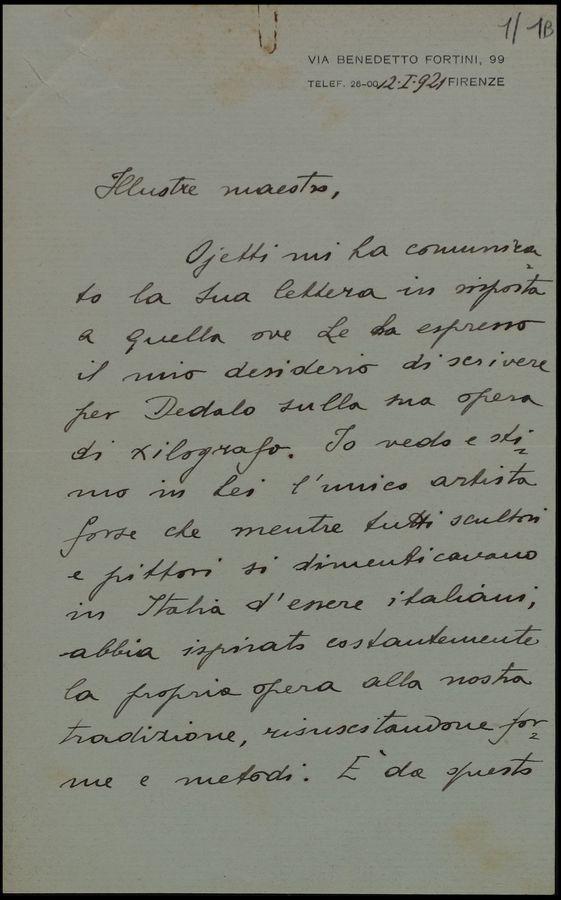 1/1B
VIA BENEDETTO FORTINI, 99
TELEF. 26-00 12·I·921 FIRENZE
Illustre maestro,
Ojetti mi ha comunica=
to la Sua lettera in risposta
a quella ove Le ha espresso
il mio desiderio di scrivere
per Dedalo sulla sua opera
di xilografo. Io vedo e sti=
mo in Lei l'unico artista
forse che mentre tutti scultori
e pittori si dimenticavano
in Italia d'essere italiani,
abbia ispirato costantemente
la propria opera alla nostra
tradizione, risuscitandone for=
me e metodi. E' da questo